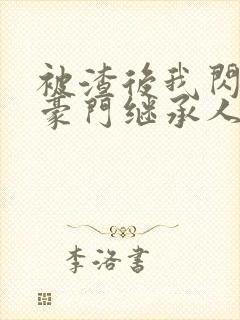 被渣後我閃
豪門继承人
李洛書